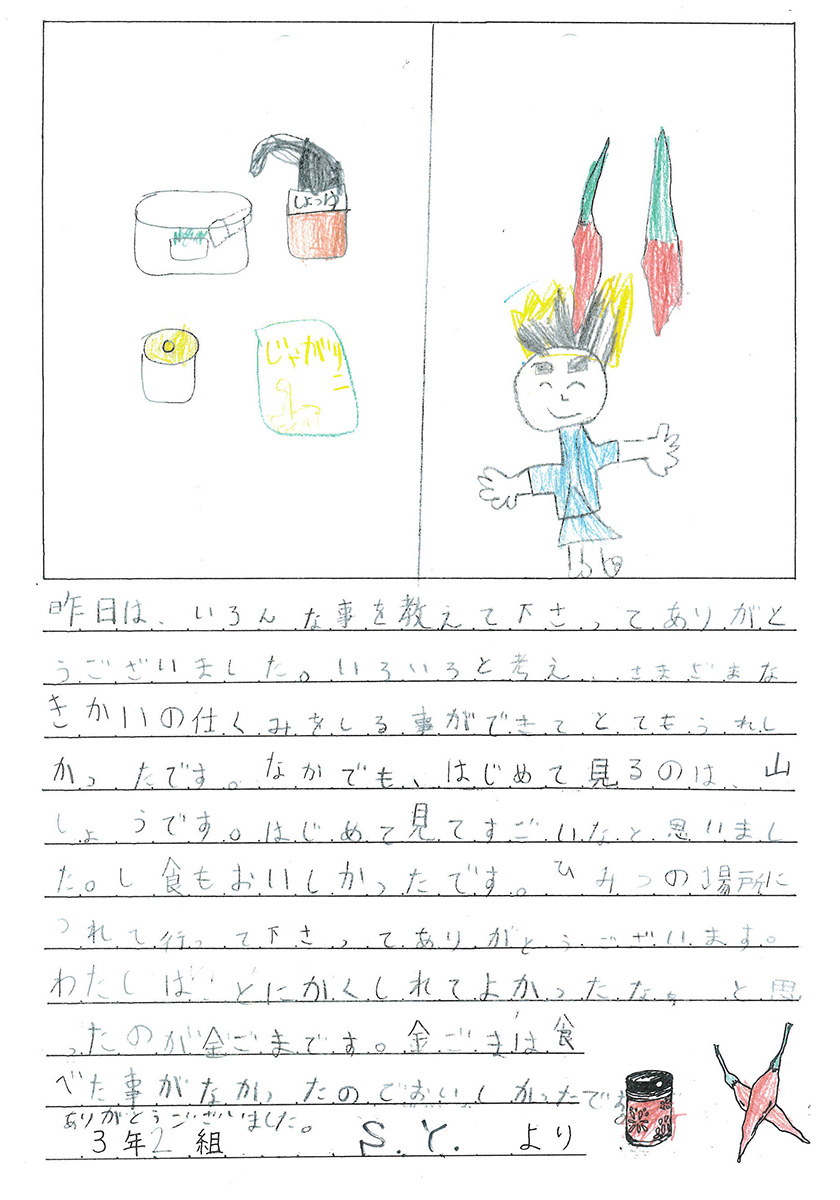 しょうゆ
じゃがりこ
昨日は、いろんな事を教えて下さってありがと
うございました。いろいろと考え、さまざまな
きかいの仕くみをしる事ができてとてもうれし
かったです。なかでも、はじめて見るのは、山
しょうです。はじめて見てすごいなと思いまし
た。し食もおいしかったです。ひみつの場所に
つれて行って下さってありがとうございます。
わたしは、とにかくしれてよかったなぁと思
ったのが金ごまです。金ごまは食
べた事がなかったのでおいしかったです。
ありがとうございました。
3年2組 S.Y. より